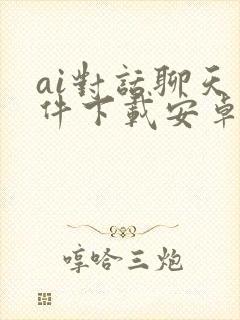 ai對話聊天
件下載安卓
哼哈三炮